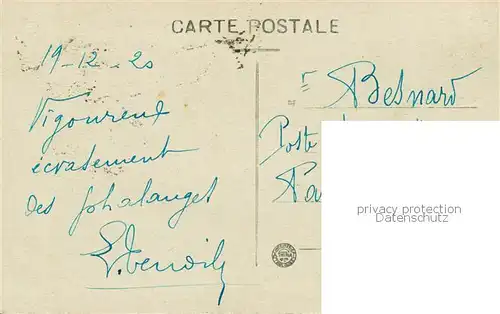 CARTE POSTALE
19-12-20
Vigoureux
écrasement
des phalanges
Besnard
Poste
Pa
privacy protection
Datenschutz